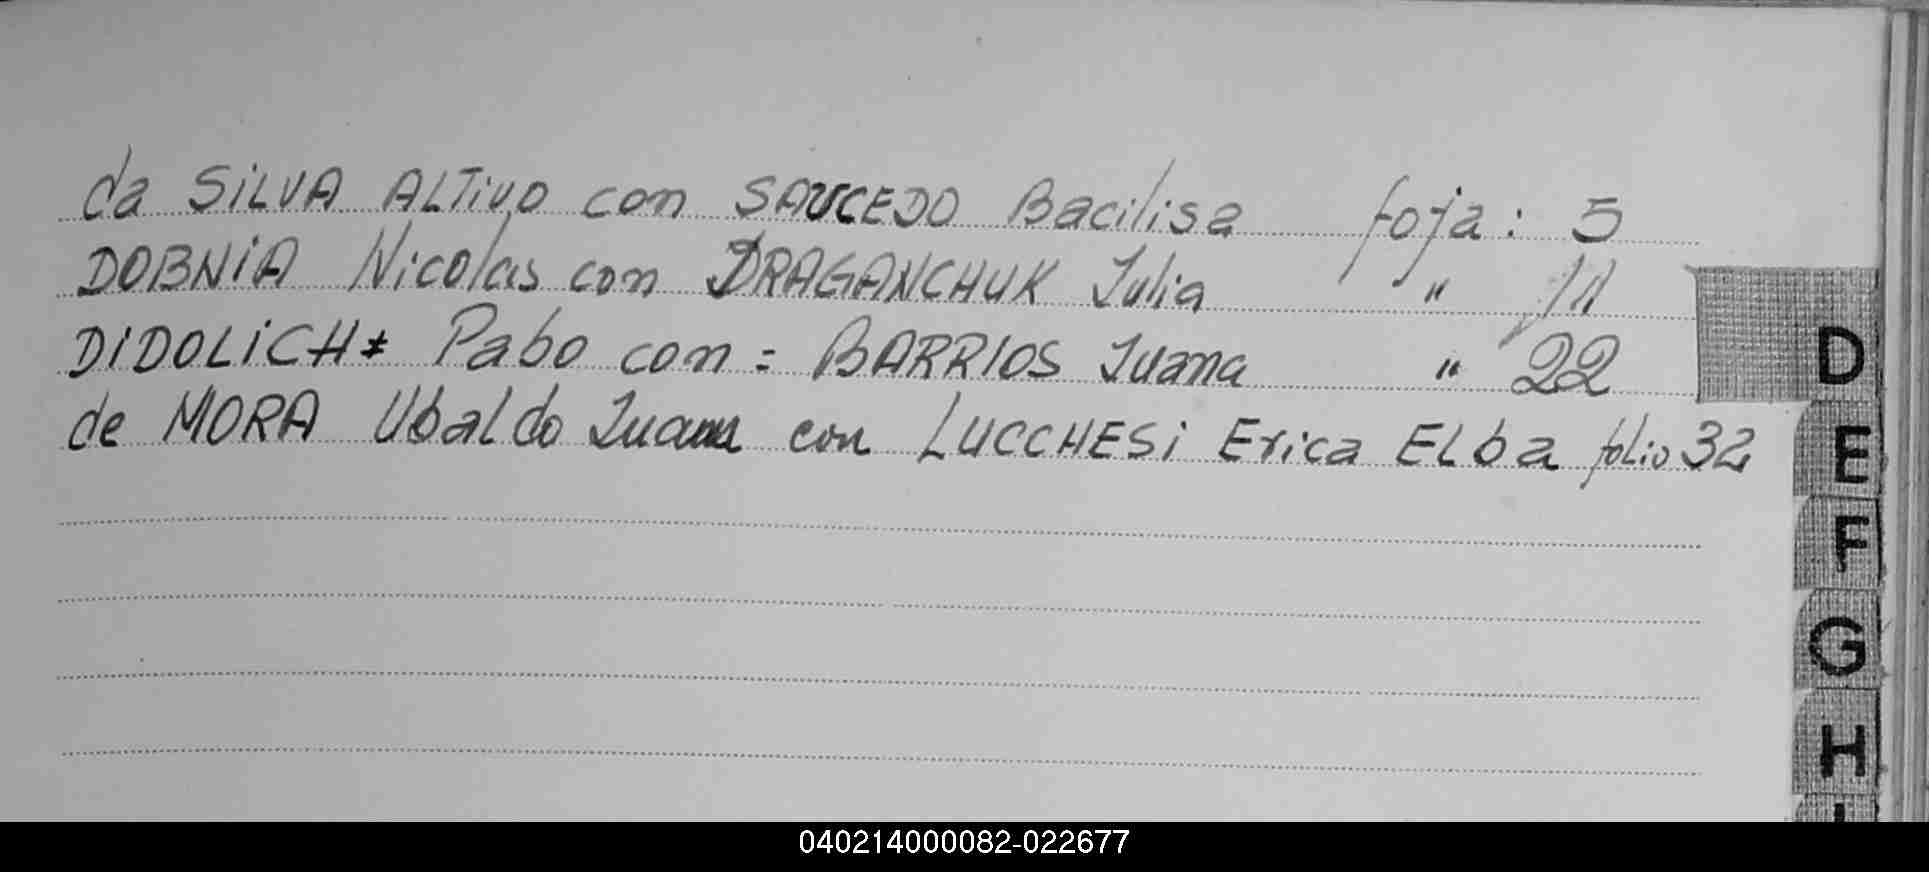 da SiLVA ALTivo con SAUCEDO Bacilisa foja: 5
DOBNiA Nicolas con DRAGANCHUK Julia " 11
DIDOLiCH* Pabo con = BARRIOS Juana " 22
de MORA Ubaldo Juan con LUCCHESi Erica ELba folio 32
D
E
F
G
H
040214000082-022677